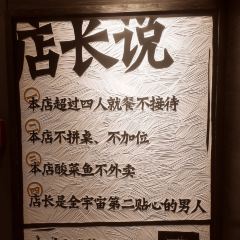 店长说
一 本店超过四人就餐不接待
二 本店不拼桌、不加位
三 本店酸菜鱼不外卖
四 店长是全宇宙第二贴心的男人